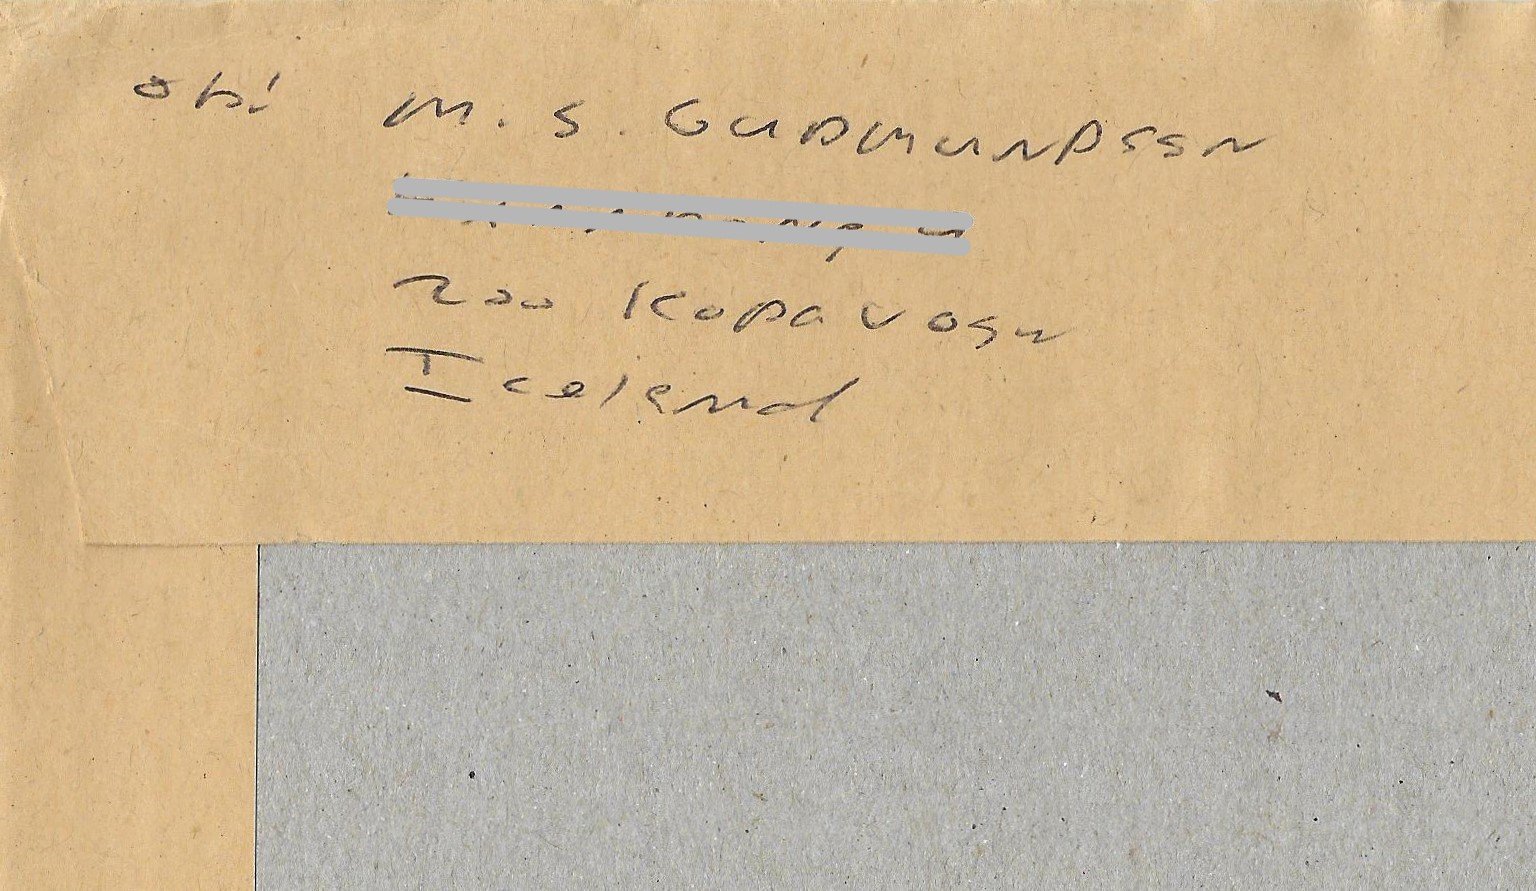 M. S. GUDMUNDSSN
200 KOPAVOGR
Iceland